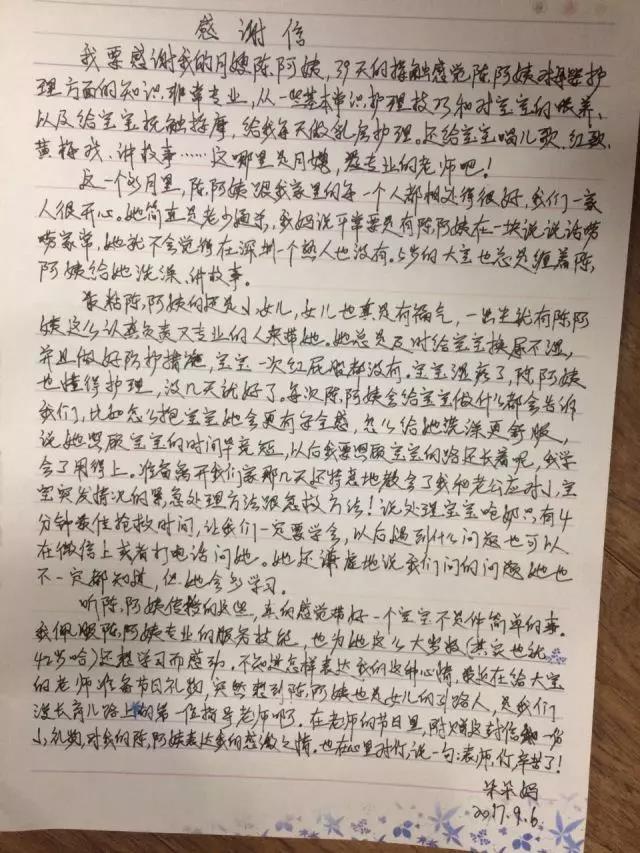 感谢信
我要感谢我的月嫂陈阿姨，39天的接触感觉陈阿姨对母婴护
理方面的知识非常专业，从一些基本常识护理技巧和对宝宝的喂养，
以及给宝宝抚触按摩，给我每天做乳房护理。还给宝宝唱儿歌、红歌、
黄梅戏、讲故事……这哪里是月嫂，是专业的老师吧！
这一个多月里，陈阿姨跟我家里的每一个人都相处得很好，我们一家
人很开心。她简直是老少通杀，我妈说平常要是有陈阿姨在一块说说话唠
唠家常，她就不会觉得在深圳一个熟人也没有。5岁的大宝也总是缠着陈
阿姨给她洗澡、讲故事。
最粘陈阿姨的还是小女儿，女儿也真是有福气，一出生就有陈阿
姨这么认真负责又专业的人来带她。她总是及时给宝宝换尿不湿，
并且做好防护措施，宝宝一次红屁股都没有。宝宝湿疹了，陈阿姨
也懂得护理，没几天就好了。每次陈阿姨会给宝宝做什么都会告诉
我们，比如怎么抱宝宝她会更有安全感，怎么给她洗澡更舒服，
说她照顾宝宝的时间毕竟短，以后我要照顾宝宝的路还长着呢，我学
会了用得上。准备离开我们家那几天还特意地教会了我和老公应对小宝
宝突发情况的紧急处理方法跟急救方法！说处理宝宝呛奶只有4
分钟最佳抢救时间，让我们一定要学会，以后遇到什么问题也可以
在微信上或者打电话问她。她还谦虚地说我们问的问题她也
不一定都知道，但她会多学习。
听陈阿姨传授的这些，真的感觉带好一个宝宝不是件简单的事。
我佩服陈阿姨专业的服务技能，也为她这么大岁数(其实也就
42岁哈)还想学习而感动。不知道怎样表达我的这种心情，最近在给大宝
的老师准备节日礼物，突然想到陈阿姨也是女儿的引路人，是我们
漫长育儿路上的第一位指导老师啊。在老师的节日里，附赠这封信和一份
小礼物，对我的陈阿姨表达我的感激之情。也在心里对你说一句：老师，你辛苦了！
朵朵妈
2017.9.6